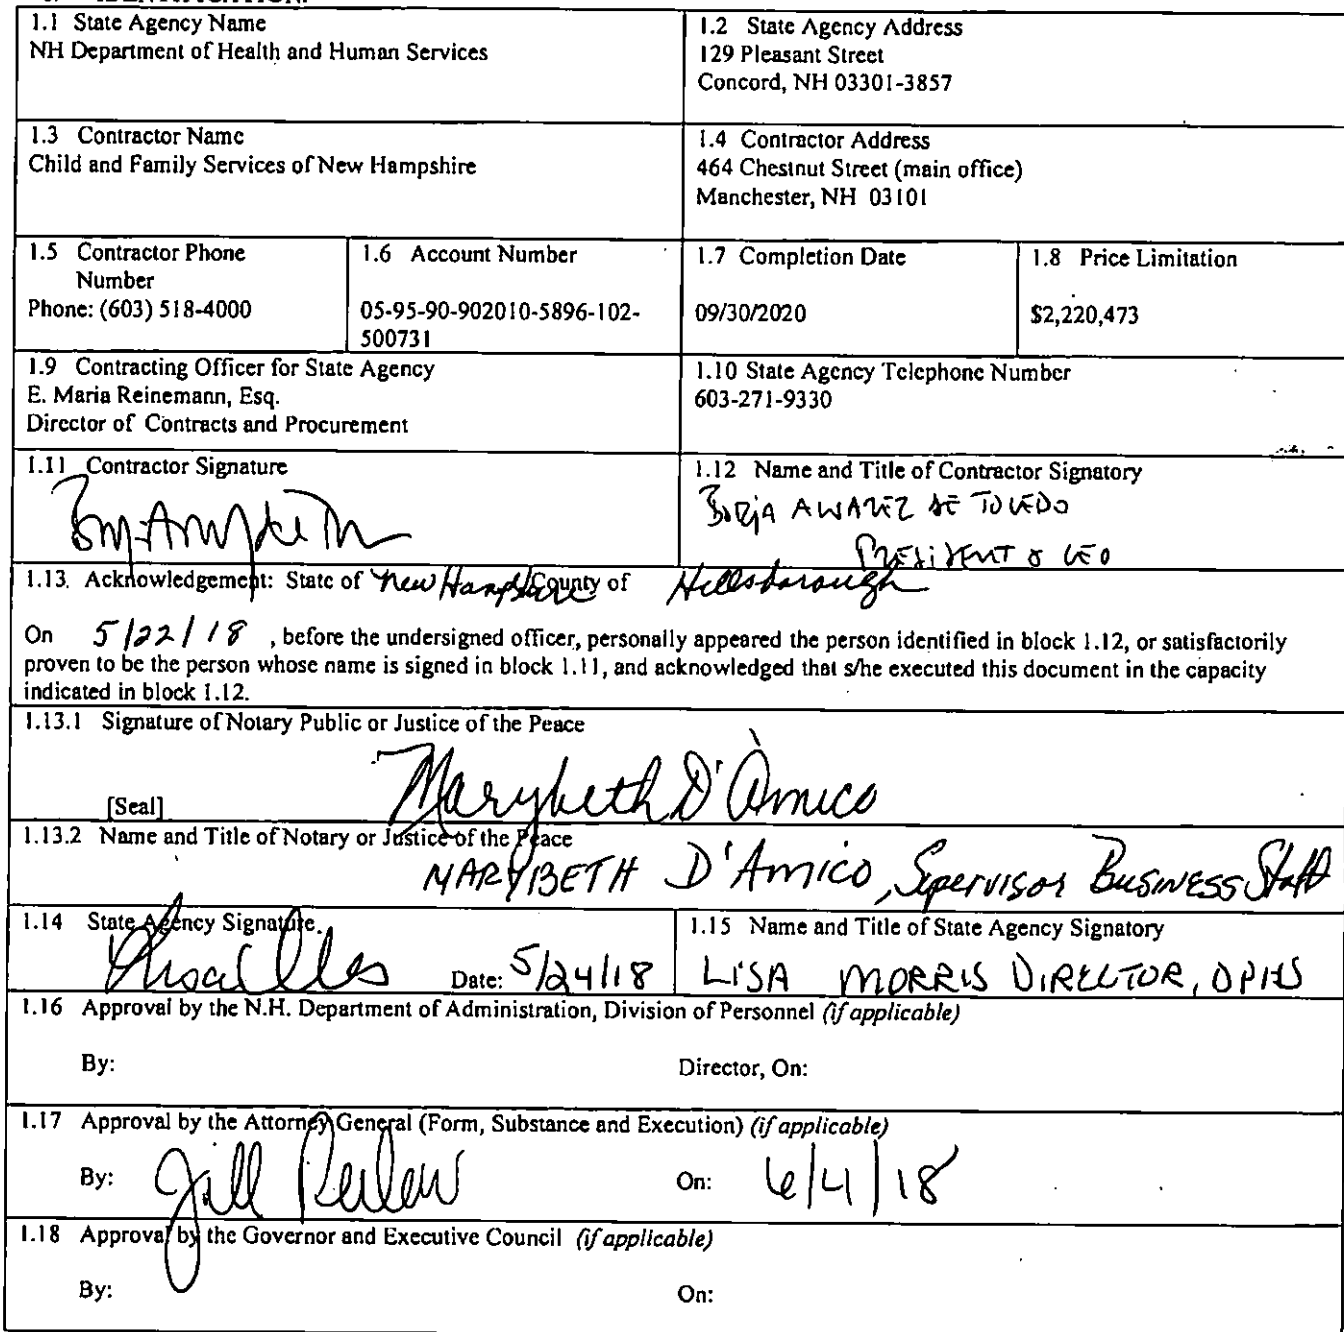 1.1 State Agency Name
NH Department of Health and Human Services
1.2 State Agency Address
129 Pleasant Street
Concord, NH 03301-3857
1.3 Contractor Name
Child and Family Services of New Hampshire
1.4 Contractor Address
464 Chestnut Street (main office)
Manchester, NH 03101
1.5 Contractor Phone
Number
Phone: (603) 518-4000
1.6 Account Number
05-95-90-902010-5896-102-
500731
1.7 Completion Date
09/30/2020
1.8 Price Limitation
$2,220,473
1.9 Contracting Officer for State Agency
E. Maria Reinemann, Esq.
Director of Contracts and Procurement
1.10 State Agency Telephone Number
603-271-9330
1.11 Contractor Signature
1.12 Name and Title of Contractor Signatory
BORJA ALVAREZ DE TOLEDO
PRESIDENT & CEO
1.13. Acknowledgement: State of New Hampshire County of Hillsborough
On 5/22/18 , before the undersigned officer, personally appeared the person identified in block 1.12, or satisfactorily
proven to be the person whose name is signed in block 1.11, and acknowledged that s/he executed this document in the capacity
indicated in block 1.12.
1.13.1 Signature of Notary Public or Justice of the Peace
Marybeth D'Amico
[Seal]
1.13.2 Name and Title of Notary or Justice of the Peace
MARYBETH D'Amico, Supervisor Business Staff
1.14 State Agency Signature.
Date: 5/24/18
1.15 Name and Title of State Agency Signatory
LISA MORRIS DIRECTOR, DPHS
1.16 Approval by the N.H. Department of Administration, Division of Personnel (if applicable)
By: Director, On:
1.17 Approval by the Attorney General (Form, Substance and Execution) (if applicable)
By: Jill Perlow On: 6/4/18
1.18 Approval by the Governor and Executive Council (if applicable)
By: On: